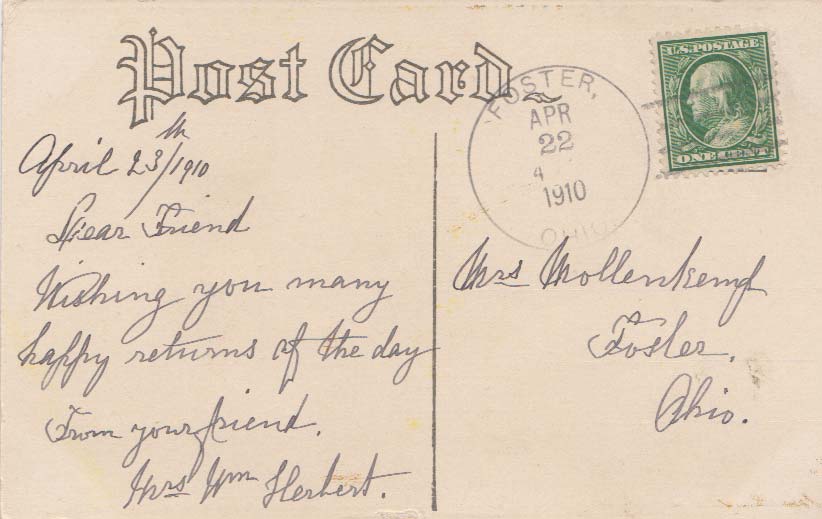 Post Card
FOSTER,
APR
22
4
1910
OHIO
U.S. POSTAGE
ONE CENT
April 23/1910
th
Dear Friend
Wishing you many
happy returns of the day
From your friend.
Mrs Wm Herbert.
Mrs Mollenkemp
Foster,
Ohio.